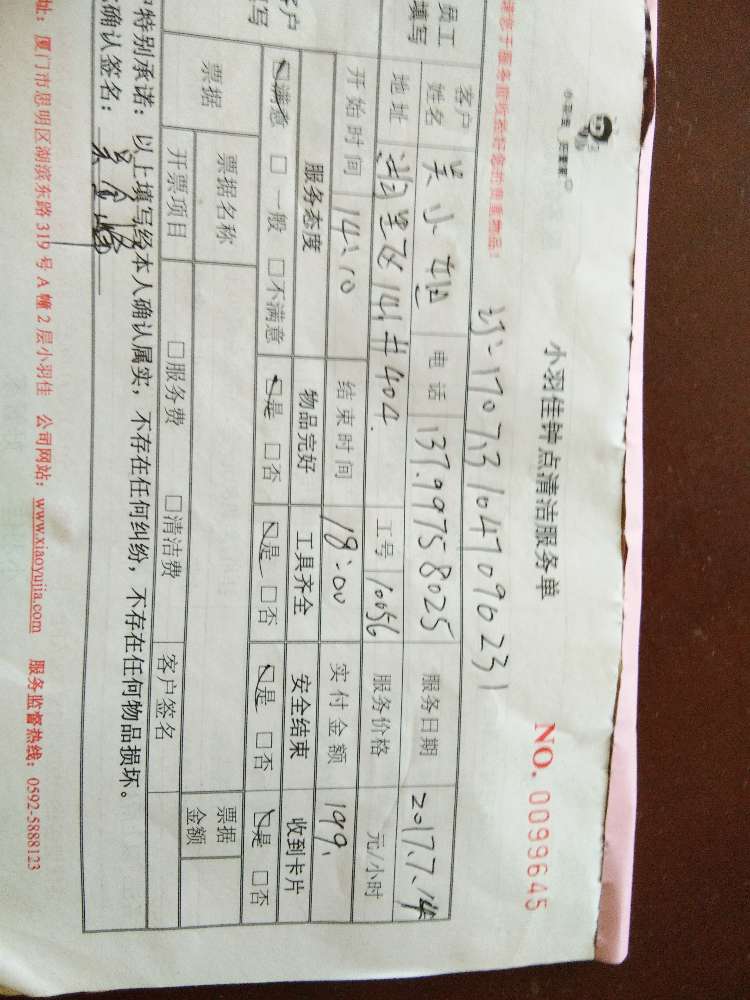 小羽佳钟点清洁服务单
NO. 0099645
170731047090231
客户姓名 吴小 电话 13799758025 服务日期 2017.7.14
员工填写
地址 404 工号 10056 服务价格 元/小时
开始时间 14:10 结束时间 18:00 实付金额 199.
服务态度 物品完好 工具齐全 安全结束 收到卡片
☑满意 □一般 □不满意 ☑是 □否 ☑是 □否 ☑是 □否 ☑是 □否
票据 票据名称 票据金额
开票项目 □服务费 □清洁费 客户签名
特别承诺：以上填写经本人确认属实，不存在任何纠纷，不存在任何物品损坏。
确认签名：
址：厦门市思明区湖滨东路 319 号 A 幢 2 层小羽佳 公司网站：www.xiaoyujia.com 服务监督热线：0592-5888123